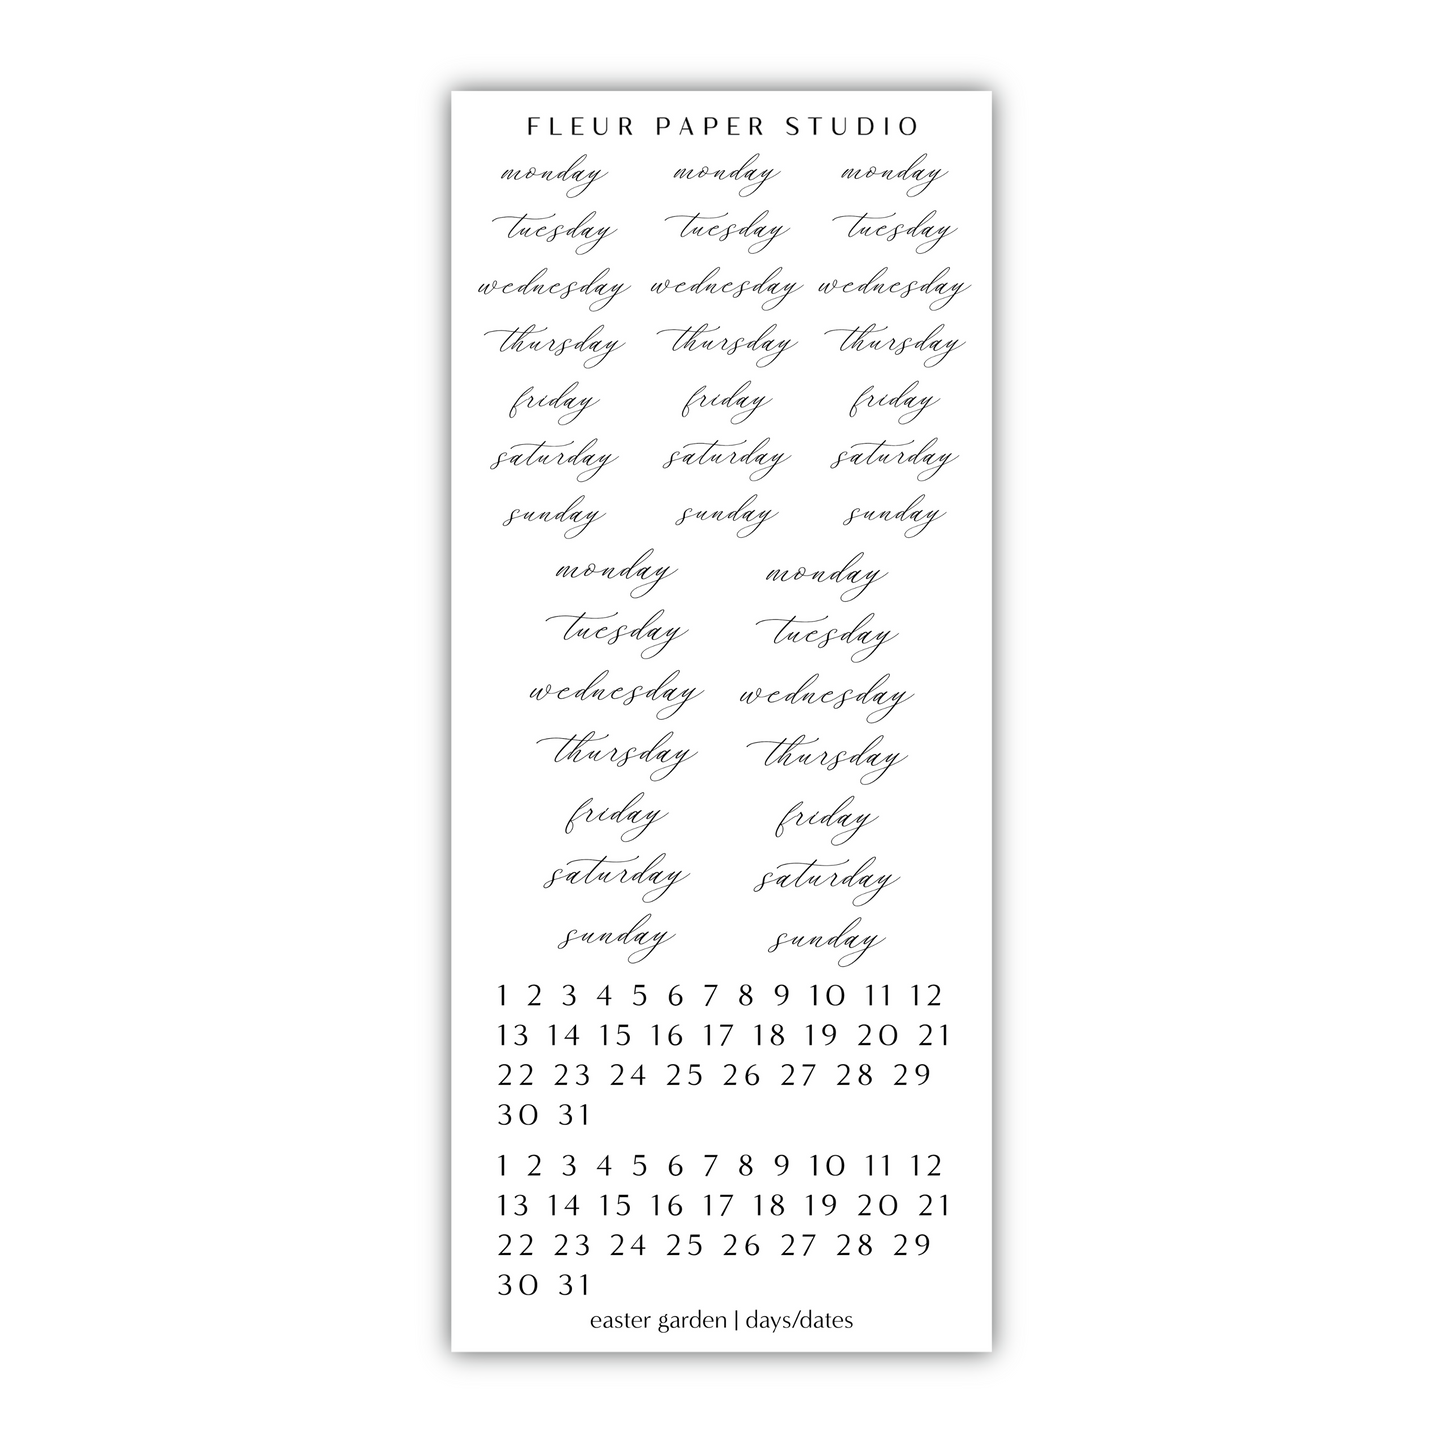 FLEUR PAPER STUDIO
monday monday monday
tuesday tuesday tuesday
wednesday wednesday wednesday
thursday thursday thursday
friday friday friday
saturday saturday saturday
sunday sunday sunday
monday monday
tuesday tuesday
wednesday wednesday
thursday thursday
friday friday
saturday saturday
sunday sunday
1 2 3 4 5 6 7 8 9 10 11 12
13 14 15 16 17 18 19 20 21
22 23 24 25 26 27 28 29
30 31
1 2 3 4 5 6 7 8 9 10 11 12
13 14 15 16 17 18 19 20 21
22 23 24 25 26 27 28 29
30 31
easter garden | days/dates